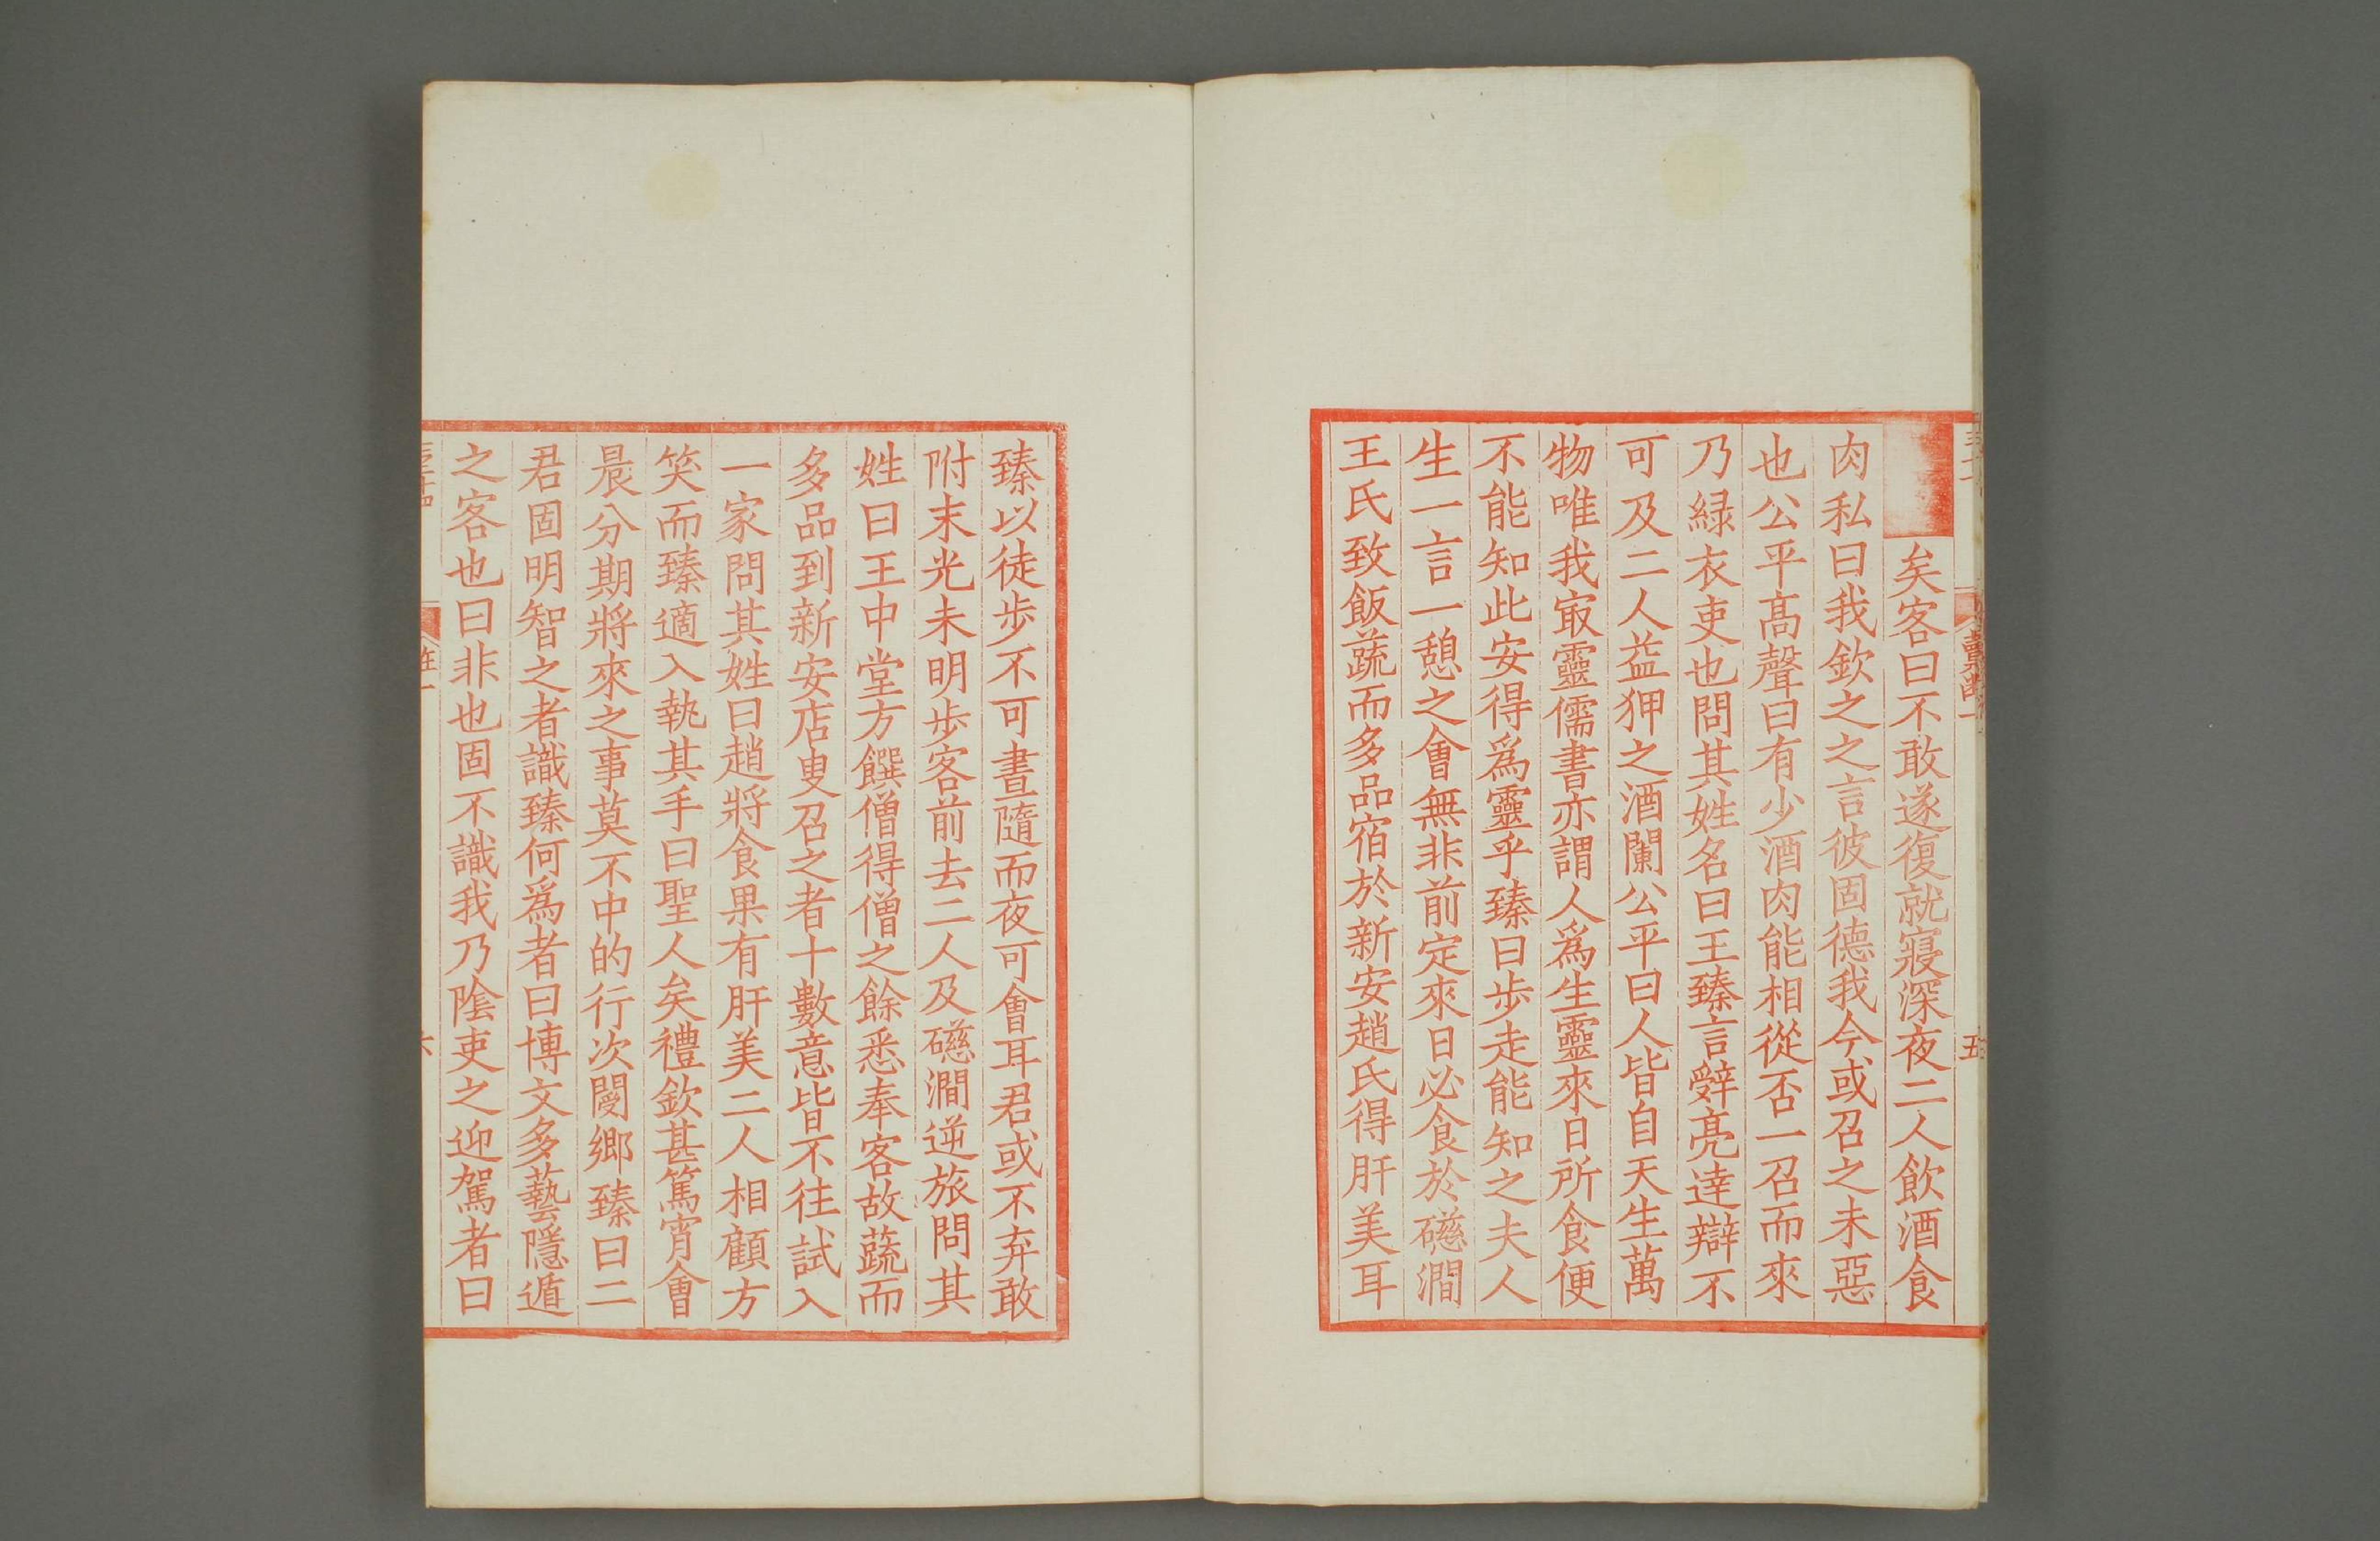 矣客曰不敢遂復就寢深夜二人飲酒食
肉私曰我欽之之言彼固德我今或召之未惡
也公平高聲曰有少酒肉能相從否一召而來
乃緑衣吏也問其姓名曰王臻言辤亮達辯不
可及二人益狎之酒闌公平曰人皆自天生萬
物唯我㝡靈儒書亦謂人爲生靈來日所食便
不能知此安得爲靈乎臻曰步走能知之夫人
生一言一憩之會無非前定來日必食於礠澗
王氏致飯蔬而多品宿於新安趙氏得肝美耳
五
臻以徒步不可晝隨而夜可會耳君或不弃敢
附末光未明步客前去二人及礠澗逆旅問其
姓曰王中堂方饌僧得僧之餘悉奉客故蔬而
多品到新安店叟召之者十數意皆不往試入
一家問其姓曰趙將食果有肝美二人相顧方
笑而臻適入執其手曰聖人矣禮欽甚篤宵會
晨分期將來之事莫不中的行次閿鄉臻曰二
君固明智之者識臻何爲者曰博文多藝隱遁
之客也曰非也固不識我乃陰吏之迎駕者曰